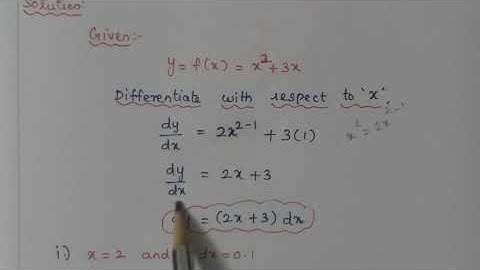 Solution:
Given:-
y = f(x) = x² + 3x
Differentiate with respect to 'x'
dy/dx = 2x²⁻¹ + 3(1)
x² = 2x²⁻¹
dy/dx = 2x + 3
= (2x+3) dx
i) x = 2 and dx = 0.1